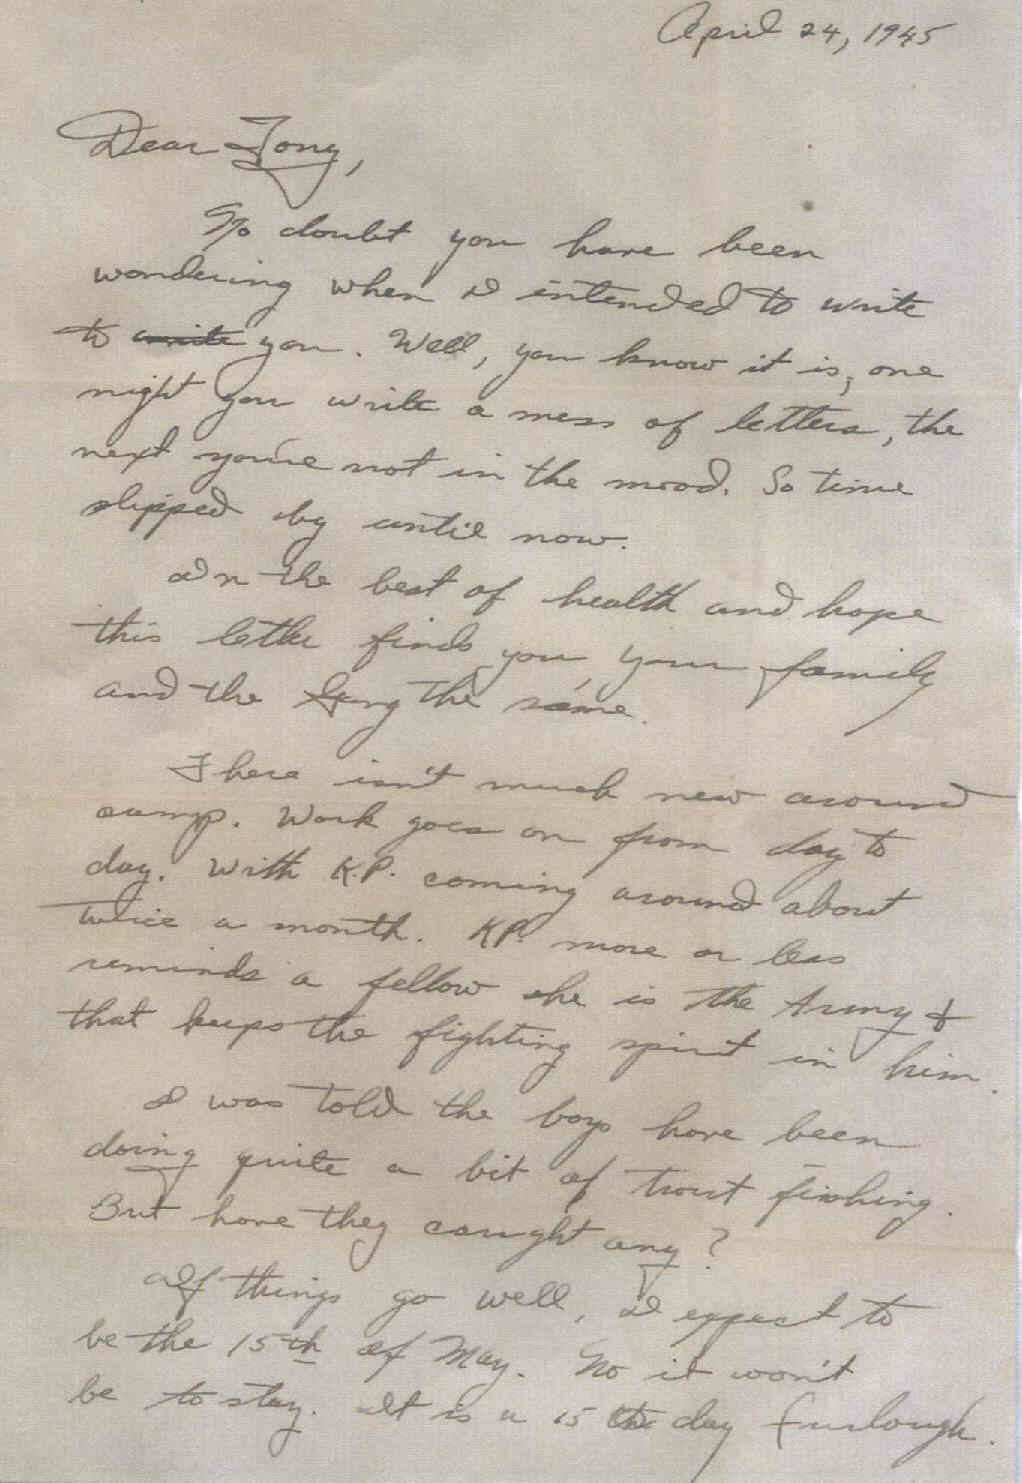 April 24, 1945
Dear Tony,
No doubt you have been
wondering when I intended to write
to write you. Well, you know it is, one
night you write a mess of letters, the
next you're not in the mood. So time
slipped by until now.
In the best of health and hope
this letter finds you, your family
and the Gang the same.
There isn't much new around
camp. Work goes on from day to
day. With K.P. coming around about
twice a month. KP. more or less
reminds a fellow he is the Army &
that keeps the fighting spirit in him.
I was told the boys have been
doing quite a bit of trout fishing.
But have they caught any?
If things go well, I expect to
be the 15th of May. No it won't
be to stay. It is a 15 day furlough.